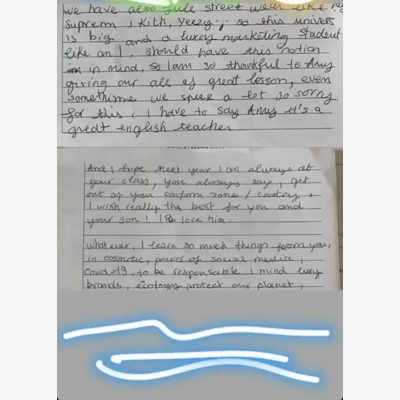 we have also full street wear like
Suprem, Kith, Yeezy... so this univers
is big and a luxery marketing student
like am I, should have this notion
in mind, so I am so thankful to Amy
giving our all of great lesson, even
somethime we speek a lot so sorry
for this, I have to say Amy it's a
great english teacher
And i hope meet year i am always at
your class, you always say, get
out of your conform zone / country,
I wish really the best for you and
your son! I love him.
whatever, I learn so much things from you,
in cosmetic, power of social media,
Covid-19, to be responsable I mind luxy
brands, ecology protect our planet,